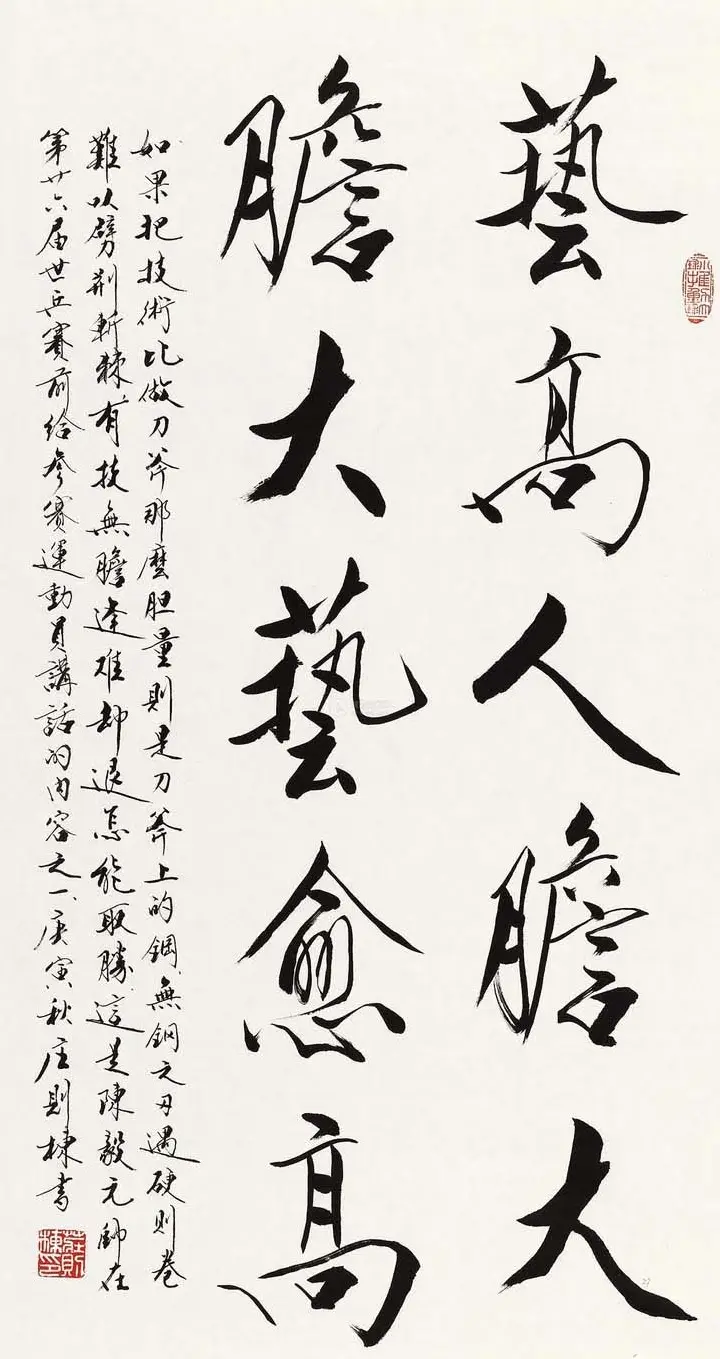 藝高人膽大
膽大藝愈高
如果把技術比做刀斧那麼胆量則是刀斧上的鋼無鋼之刃遇硬則卷
難以劈荆斬棘有技無膽逢难却退怎能取勝這是陳毅元帥在
第廿六届世乒賽前給參賽運動員講話的内容之一庚寅秋庄則棟書
莊則棟印